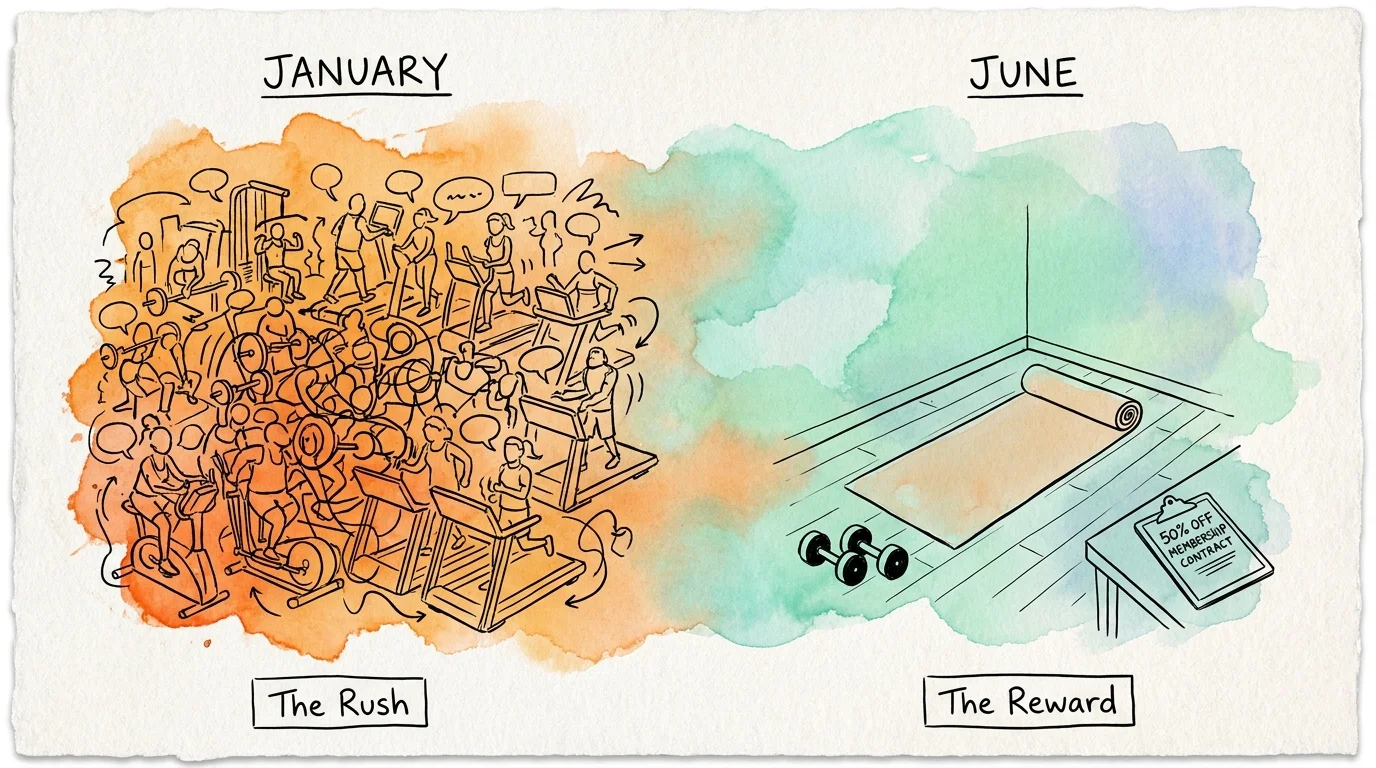 JANUARY
JUNE
50% OFF
MEMBERSHIP
CONTRACT
The Rush
The Reward